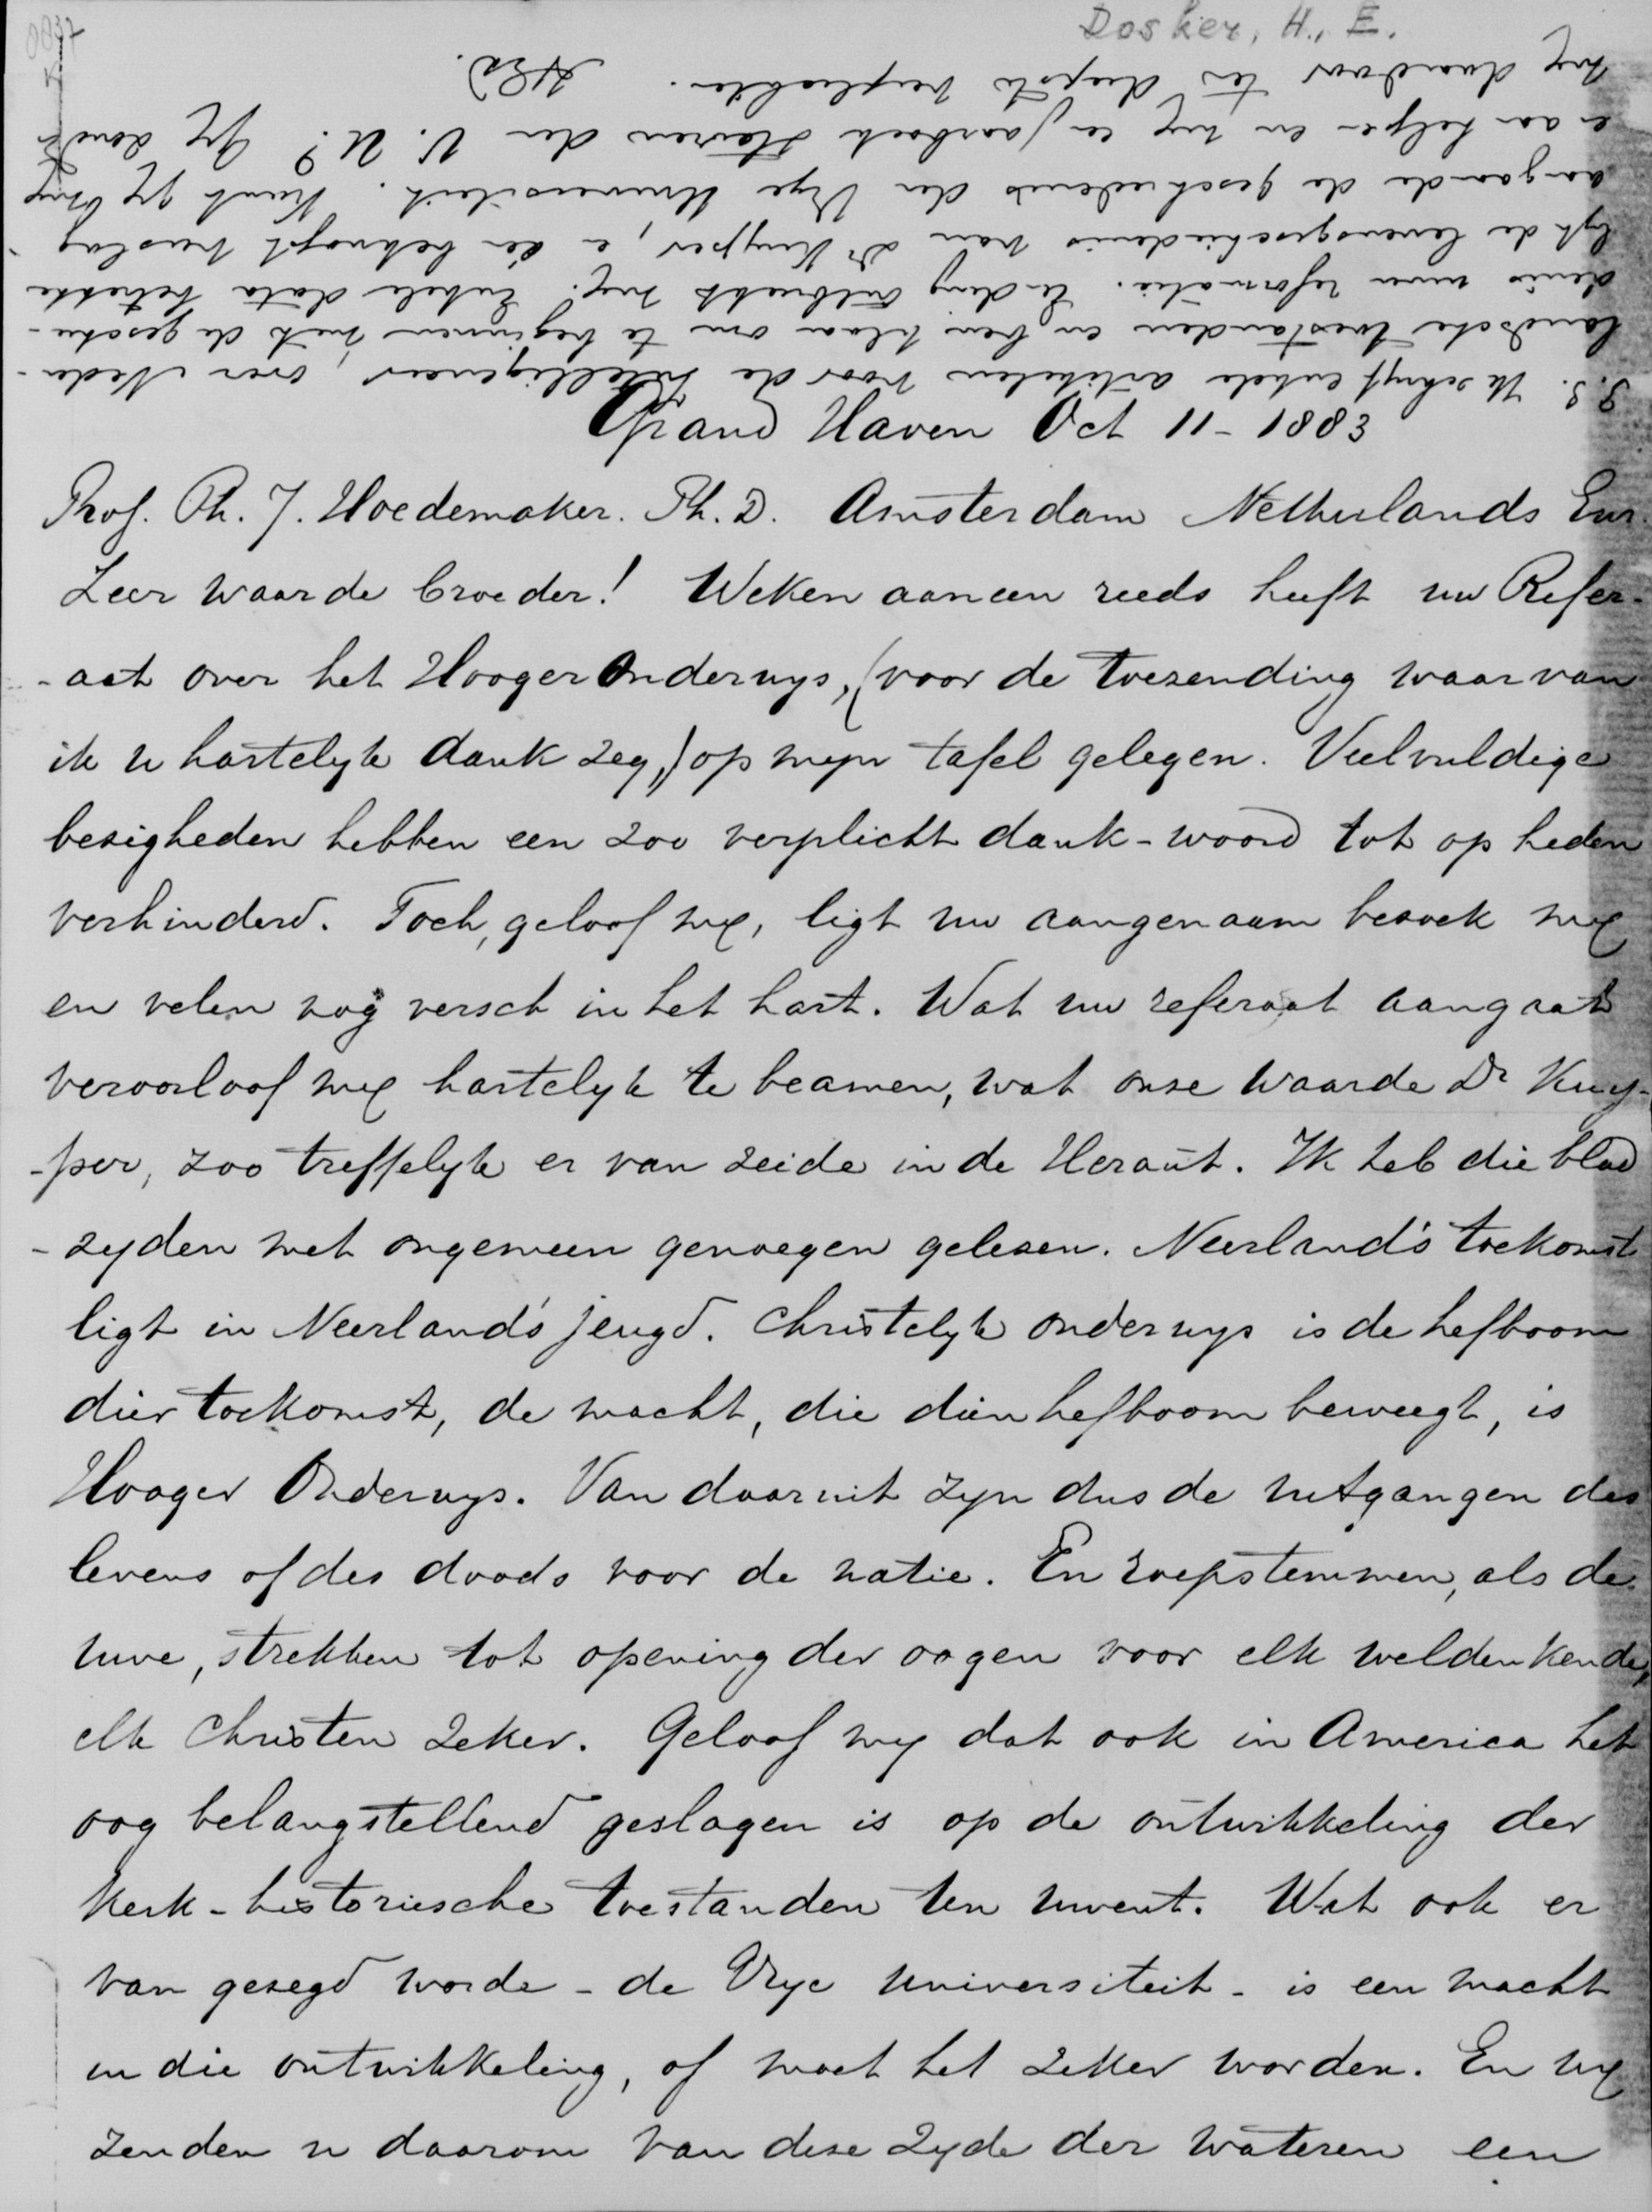 Dosker, H., E.
0037
Grand Haven Oct 11 - 1883
Prof. Ph. J. Hoedemaker. Ph. D. Amsterdam Netherlands Eur.
Zeer waarde broeder! Weken aaneen reeds heeft uw Refer-
-aat over het Hooger Onderwys, (voor de toezending waarvan
ik u hartelyk dank zeg,) op myn tafel gelegen. Veelvuldige
bezigheden hebben een zoo verplicht dank-woord tot op heden
verhinderd. Toch, geloof my, ligt uw aangenaam bezoek my
en velen nog versch in het hart. Wat uw referaat aangaat
veroorloof my hartelyk te beamen, wat onze waarde Dr Kuy-
-per, zoo treffelyk er van zeide in de Heraut. Ik heb die blad
-zyden met ongemeen genoegen gelezen. Neerland's toekomst
ligt in Neerland's jeugd. Christelyk onderwys is de hefboom
dier toekomst, de macht, die dien hefboom beweegt, is
Hooger Onderwys. Van daaruit zyn dus de uitgangen des
levens of des doods voor de natie. En roepstemmen, als de
uwe, strekken tot opening der oogen voor elk weldenkende,
elk Christen zeker. Geloof my dat ook in America het
oog belangstellend geslagen is op de ontwikkeling der
Kerk-historiesche toestanden ten uwent. Wat ook er
van gezegd worde - de Vrye Universiteit - is een macht
in die ontwikkeling, of moet het zeker worden. En wy
zenden u daarom van deze zyde der wateren een
P.S. Ik schryf enkele artikelen voor de Intelligencer, over Neder-
landsche toestanden en ben klaar om te beginnen met de geschie-
denis uwer reformatie. Eending ontbreekt my. Enkele data betrekke
lyk de levensgeschiedenis van Dr Kuyper, en een beknopt verslag
aangaande de geschiedenis der Vrye Universiteit. Kunt gy my
er aan helpen en my een jaarboek sturen der V. U? Gy zoudt
my daardoor ten diepste verplichten. HED.